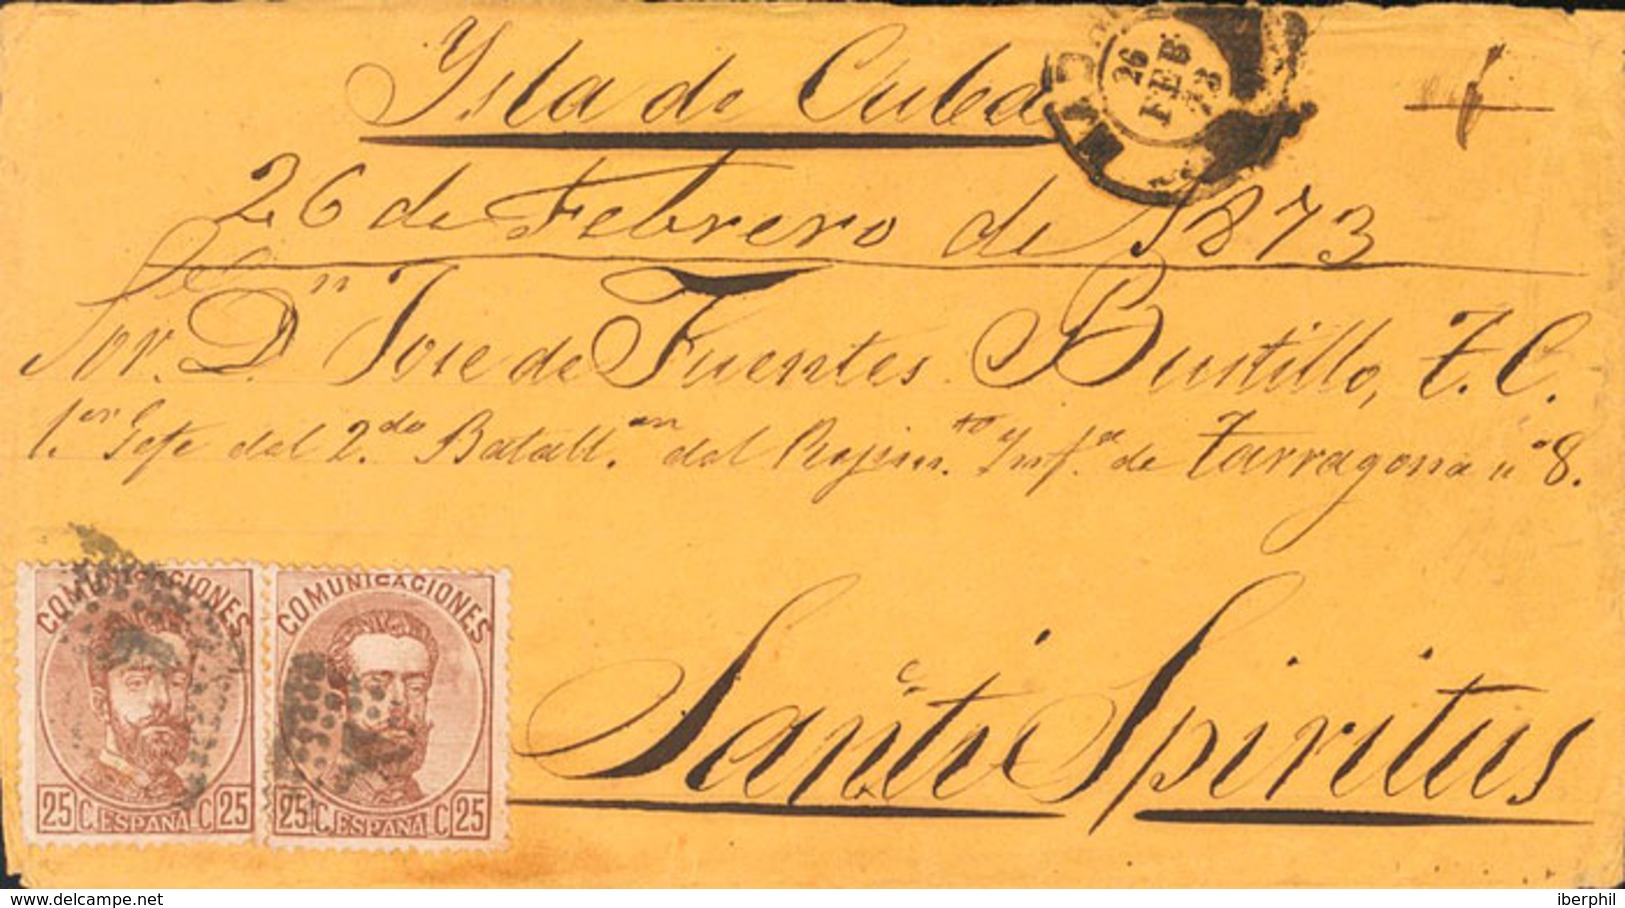 Ysla de Cuba
MADR
26
FEB
73
26 de Febrero de 1873
Sor. Dn. Jose de Fuentes Bustillo, T. C.
1.er Gefe del 2.do Batall.on del Rejim.to Ynf.a de Tarragona n.o 8.
Santi Spiritus
COMUNICACIONES
25 C. ESPAÑA C 25
COMUNICACIONES
25 C. ESPAÑA C 25
www.delcampe.net
iberphil